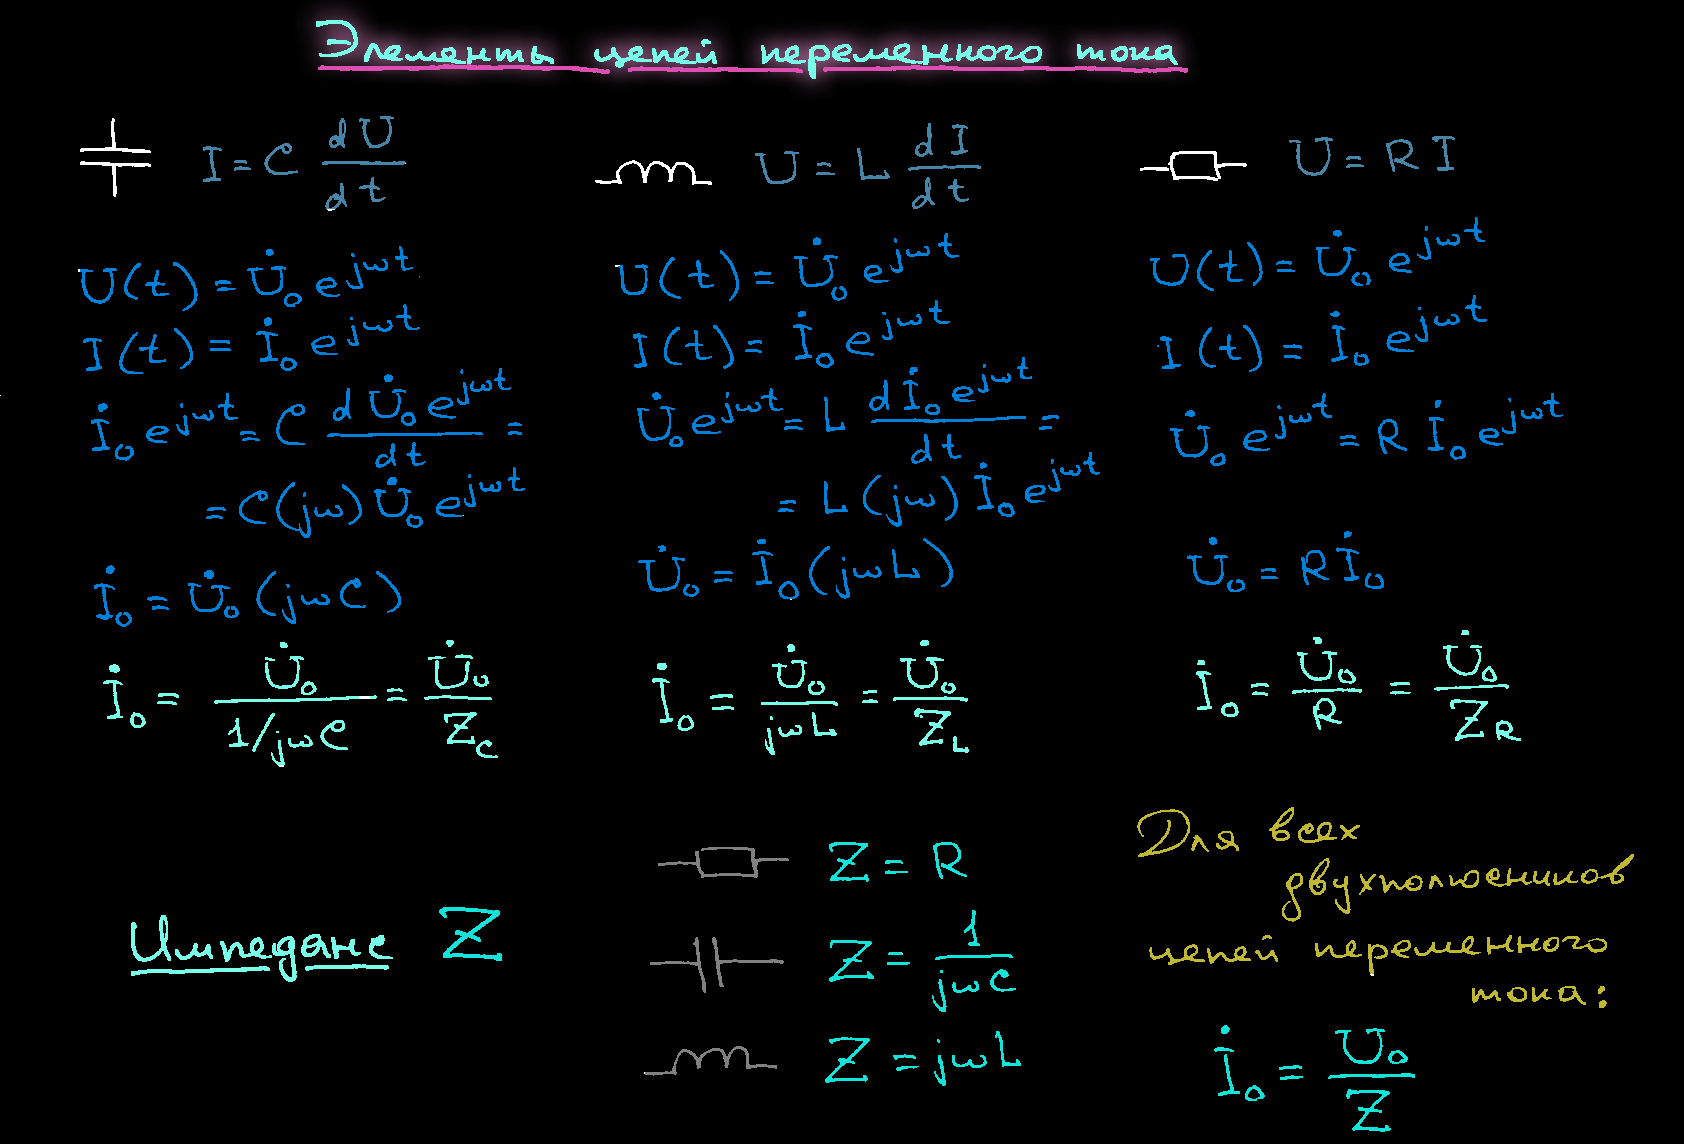 Элементы цепей переменного тока
I = C dU/dt
U(t) = U̇₀ e^{jωt}
I(t) = İ₀ e^{jωt}
İ₀ e^{jωt} = C d U̇₀ e^{jωt}/dt =
= C(jω) U̇₀ e^{jωt}
İ₀ = U̇₀ (jωC)
İ₀ = U̇₀/(1/jωC) = U̇₀/Z_C
U = L dI/dt
U(t) = U̇₀ e^{jωt}
I(t) = İ₀ e^{jωt}
U̇₀ e^{jωt} = L d İ₀ e^{jωt}/dt =
= L (jω) İ₀ e^{jωt}
U̇₀ = İ₀ (jωL)
İ₀ = U̇₀/jωL = U̇₀/Z_L
U = R I
U(t) = U̇₀ e^{jωt}
I(t) = İ₀ e^{jωt}
U̇₀ e^{jωt} = R İ₀ e^{jωt}
U̇₀ = R İ₀
İ₀ = U̇₀/R = U̇₀/Z_R
Импеданс Z
Z = R
Z = 1/jωC
Z = jωL
Для всех
двухполюсников
цепей переменного
тока:
İ₀ = U₀/Z